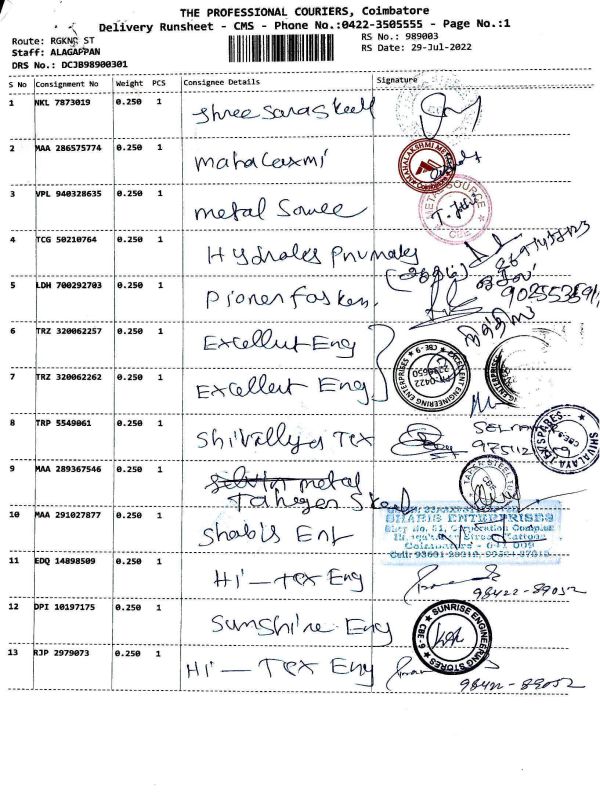 THE PROFESSIONAL COURIERS, Coimbatore
Delivery Runsheet - CMS - Phone No.:0422-3505555 - Page No.:1
Route: RGKNR ST
RS No.: 989003
Staff: ALAGAPPAN
RS Date: 29-Jul-2022
DRS No.: DCJB98900301
S No Consignment No Weight PCS Consignee Details Signature
1 NKL 7873019 0.250 1 Shree Saraa Steel
2 MAA 286575774 0.250 1 Maha Laxmi
MAHALAKSHMI METAL
3 VPL 940328635 0.250 1 Metal Source
METAL SOURCE
CBE
4 TCG 50210764 0.250 1
5 LDH 700292703 0.250 1
6 TRZ 320062257 0.250 1 Excellent Eng
EXCELLENT ENGINEERING ENTERPRISES CBE-9
7 TRZ 320062262 0.250 1 Excellent Eng
8 TRP 5549061 0.250 1 Shivallya Tex
SHIVALAYA TEX SPARES
9 MAA 289367546 0.250 1 metal
10 MAA 291027877 0.250 1 Shabis Ent
SHABIS ENTERPRISES
Corporation Complex
11 EDQ 14898509 0.250 1 Hi - Tex Eng
98422-89052
12 DPI 10197175 0.250 1 Sunshine Eng
SUNRISE ENGINEERING STORES CBE-9
13 RJP 2979073 0.250 1 Hi - Tex Eng
98422-89052